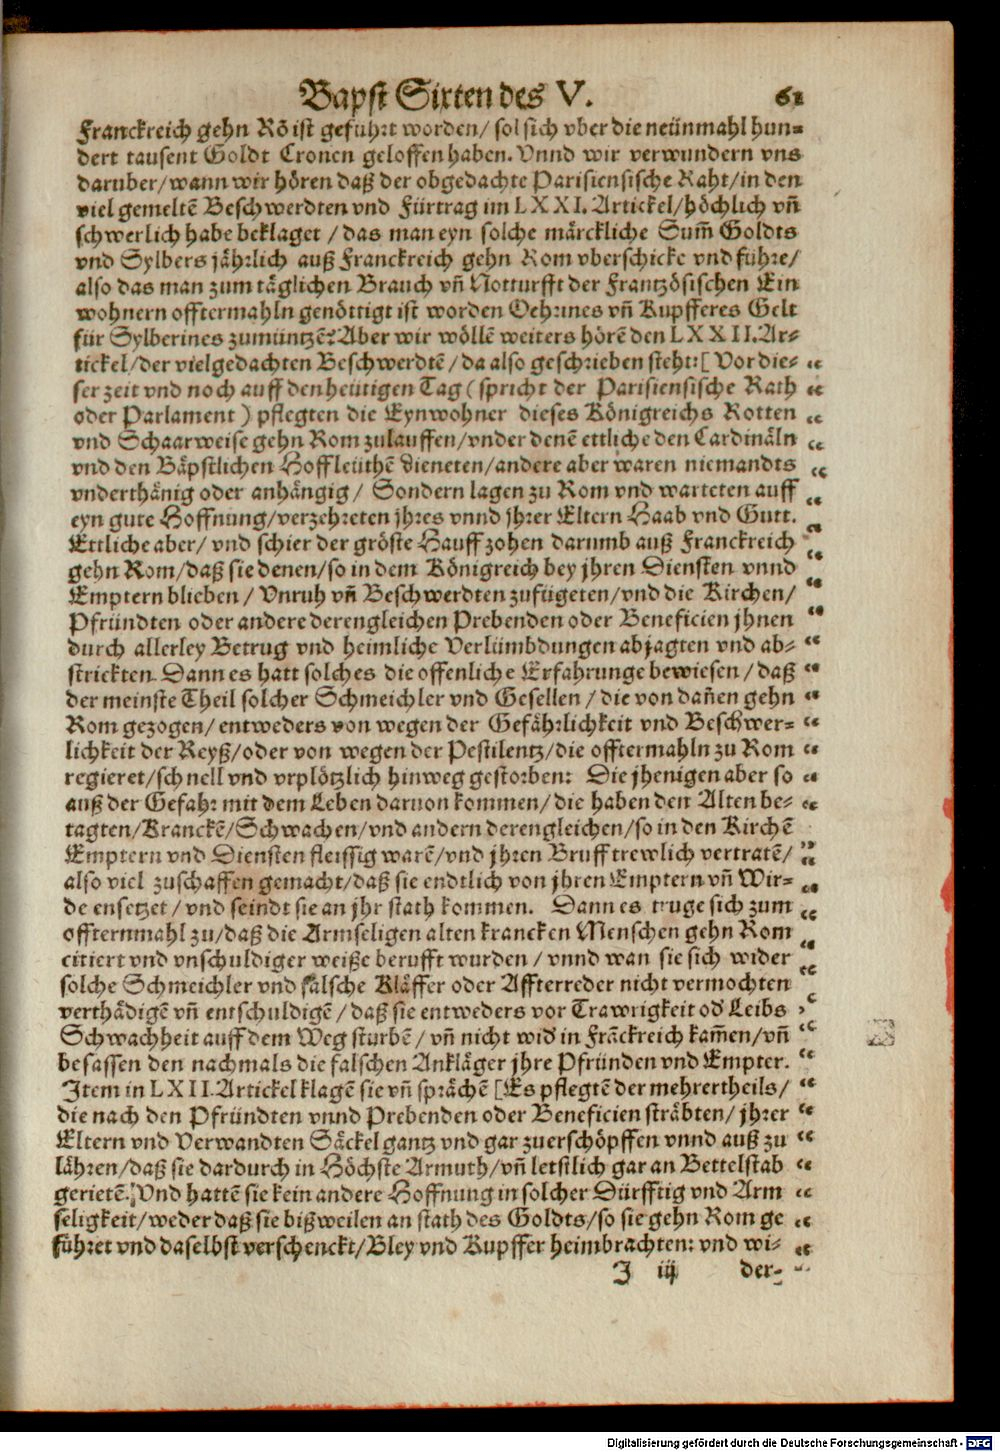 Bapst Sixten des V. 61
Franckreich gehn Rõ ist geführt worden/ sol sich vber die neünmahl hun⸗
dert tausent Goldt Cronen geloffen haben. Vnnd wir verwundern vns
darüber/wann wir hören daß der obgedachte Parisiensische Raht/in den
viel gemeltẽ Beschwerdten vnd Fürtrag im LXXI. Artickel/höchlich vñ
schwerlich habe beklaget / das man eyn solche märckliche Sum̃ Goldts
vnd Sylbers jährlich auß Franckreich gehn Rom vberschicke vnd führe/
also das man zum täglichen Brauch vñ Notturfft der Frantzösischen Ein
wohnern offtermahln genöttigt ist worden Oehrines vñ Kupfferes Gelt
für Sylberines zumüntzẽ? Aber wir wöllẽ weiters hörẽ den LXXII. Ar⸗
tickel/der vielgedachten Beschwerdtẽ / da also geschrieben steht: [ Vor die⸗
ser zeit vnd noch auff den heütigen Tag ( spricht der Parisiensische Rath
oder Parlament ) pflegten die Eynwohner dieses Königreichs Rotten
vnd Schaarweise gehn Rom zulauffen/vnder denẽ ettliche den Cardinäln
vnd den Bäpstlichen Hoffleüthẽ dieneten/andere aber waren niemandts
vnderthänig oder anhängig / Sondern lagen zu Rom vnd warteten auff
eyn gute Hoffnung/verzehreten jhres vnnd jhrer Eltern Haab vnd Gutt.
Ettliche aber/ vnd schier der gröste Hauff zohen darumb auß Franckreich
gehn Rom/daß sie denen/so in dem Königreich bey jhren Diensten vnnd
Emptern blieben / Vnruh vñ Beschwerdten zufügeten/vnd die Kirchen/
Pfründten oder andere derengleichen Prebenden oder Beneficien jhnen
durch allerley Betrug vnd heimliche Verlümbdungen abjagten vnd ab⸗
strickten. Dann es hatt solches die offenliche Erfahrunge bewiesen / daß
der meinste Theil solcher Schmeichler vnd Gesellen / die von dañen gehn
Rom gezogen/ entweders von wegen der Gefährlichkeit vnd Beschwer⸗
lichkeit der Reyß/oder von wegen der Pestilentz/die offtermahln zu Rom
regieret/schnell vnd vrplötzlich hinweg gestorben: Die jhenigen aber so
auß der Gefahr mit dem Leben daruon kommen/die haben den Alten be⸗
tagten/Kranckẽ/Schwachen/vnd andern derengleichen/so in den Kirchẽ
Emptern vnd Diensten fleissig warẽ/vnd jhren Bruff trewlich vertratẽ/
also viel zuschaffen gemacht/daß sie endtlich von jhren Emptern vñ Wir⸗
de ensetzet / vnd seindt sie an jhr stath kommen. Dann es truge sich zum
offternmahl zu/daß die Armseligen alten krancken Menschen gehn Rom
citiert vnd vnschuldiger weiße berufft wurden / vnnd wan sie sich wider
solche Schmeichler vnd falsche Kläffer oder Affterreder nicht vermochten
verthädigẽ vñ entschuldigẽ / daß sie entweders vor Trawrigkeit od̛ Leibs
Schwachheit auff dem Weg sturbẽ / vñ nicht wid̛ in Frãckreich kam̃en/vñ
besassen den nachmals die falschen Ankläger jhre Pfründen vnd Empter.
Item in LXII. Artickel klagẽ sie vñ sprächẽ [ Es pflegtẽ der mehrertheils/
die nach den Pfründten vnnd Prebenden oder Beneficien sträbten/ jhrer
Eltern vnd Verwandten Säckel gantz vnd gar zuerschöpffen vnnd auß zu
lähren/daß sie dardurch in Höchste Armuth/vñ letstlich gar an Bettelstab
gerietẽ. Vnd hattẽ sie kein andere Hoffnung in solcher Dürfftig vnd Arm
seligkeit/weder daß sie bißweilen an stath des Goldts/so sie gehn Rom ge
führet vnd daselbst verschenckt/Bley vnd Kupffer heimbrachten: vnd wi⸗
J iij der⸗
Digitalisierung gefördert durch die Deutsche Forschungsgemeinschaft - DFG